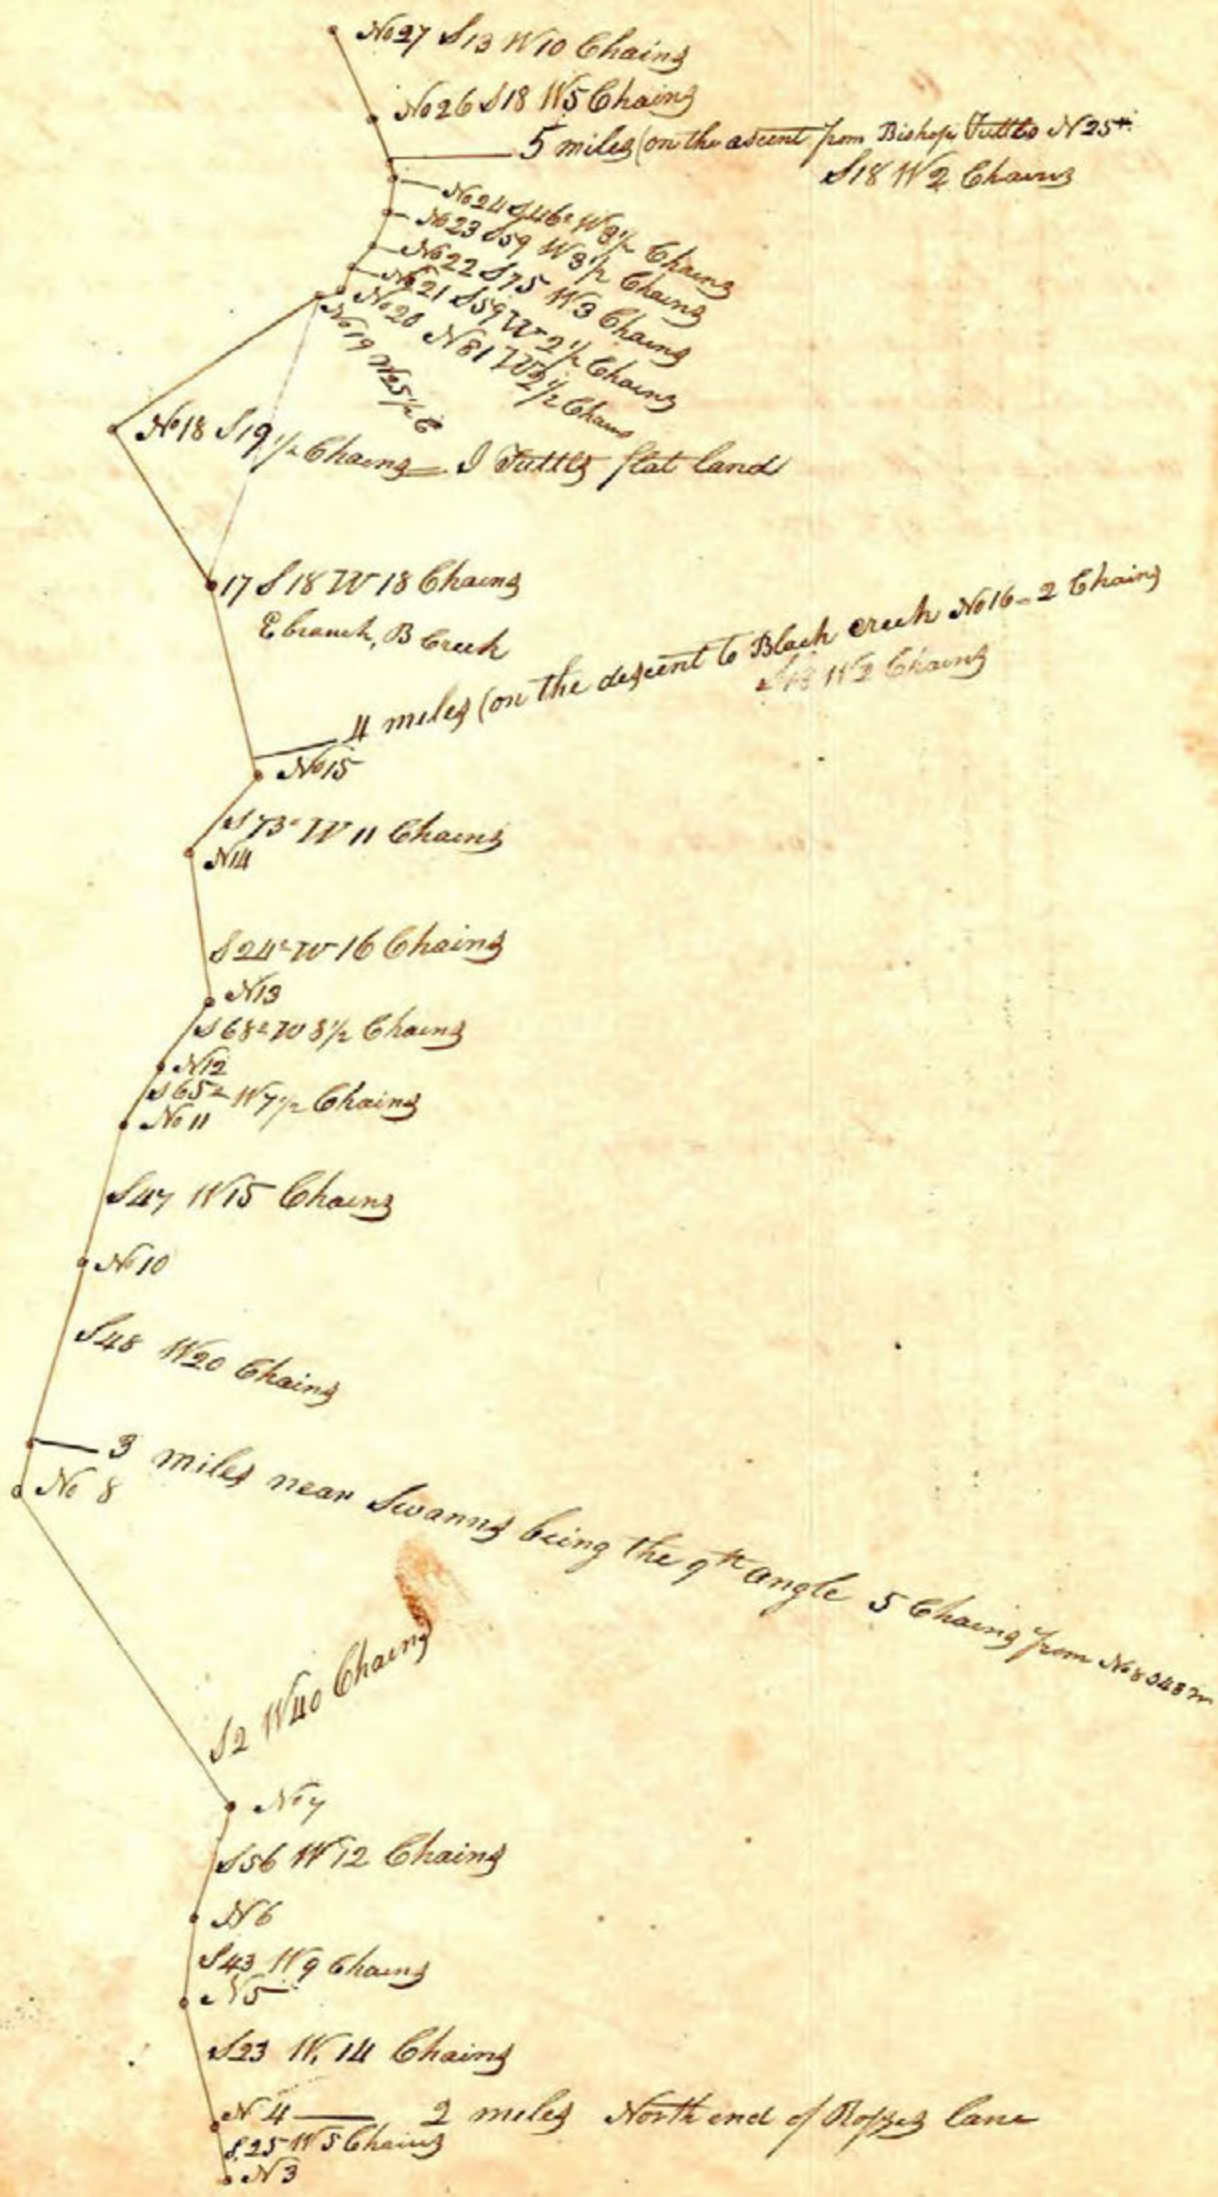 No 27 S13 W10 Chains
No 26 S18 W5 Chains
5 miles (on the ascent from Bishop Tuttles N 25th
S18 W2 Chains
No 24 S46° W 3½ Chains
No 23 S59 W 3½ Chains
No 22 S75 W3 Chains
No 21 S59 W 2½ Chains
No 20 N81 W 2½ Chains
No 19 W25½ C
No 18 S19½ Chains — J Tuttles flat land
17 S18 W 18 Chains
E branch, B Creek
4 miles (on the descent to Black creek No 16 - 2 Chains
S18 W2 Chains
No 15
S73° W 11 Chains
N14
S24° W 16 Chains
N13
S68° W 8½ Chains
N12
S65° W7½ Chains
No 11
S47 W15 Chains
No 10
S48 W20 Chains
3 miles near Swanns being the 9th angle 5 Chains from No 8 S48 W
No 8
S2 W40 Chains
No 7
S56 W12 Chains
N6
S43 W9 Chains
N5
S23 W, 14 Chains
N 4 — 2 miles North end of Rosses lane
S25 W5 Chains
N3